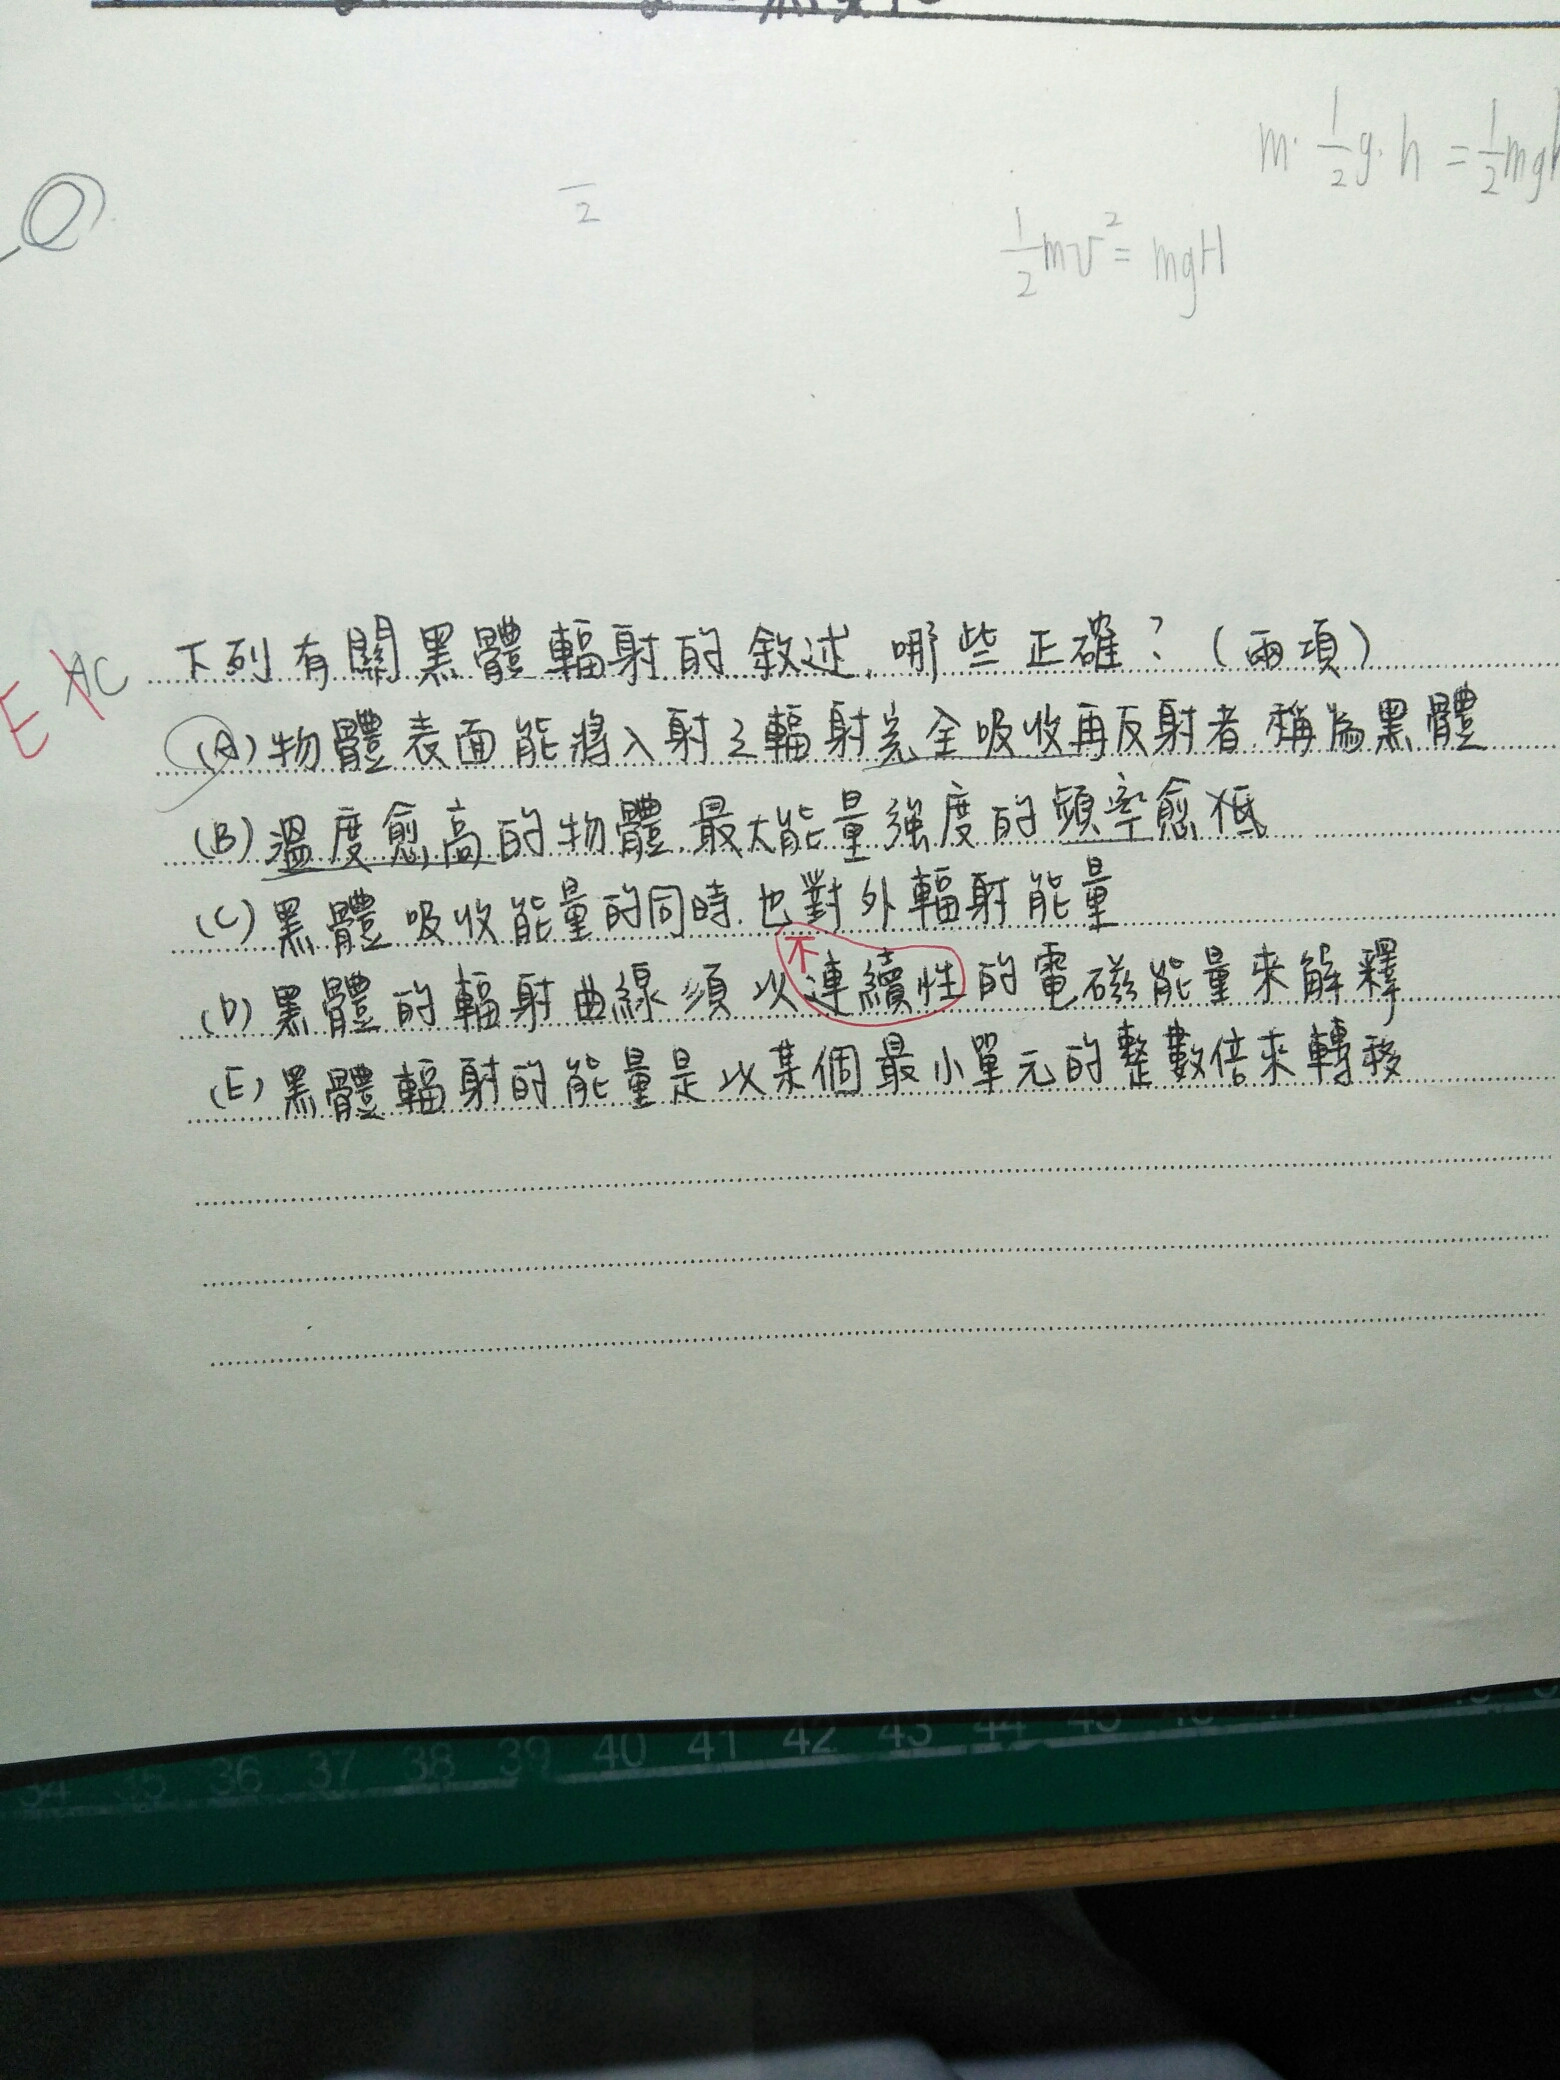 m·½g·h = ½mgh
2
½mv² = mgH
E AC 下列有關黑體輻射的敘述,哪些正確?(兩項)
(A)物體表面能將入射之輻射完全吸收再反射者,稱為黑體
(B)溫度愈高的物體,最大能量強度的頻率愈低
(C)黑體吸收能量的同時,也對外輻射能量
不
(D)黑體的輻射曲線須以連續性的電磁能量來解釋
(E)黑體輻射的能量是以某個最小單元的整數倍來轉移
34 35 36 37 38 39 40 41 42 43 44 45 46 47